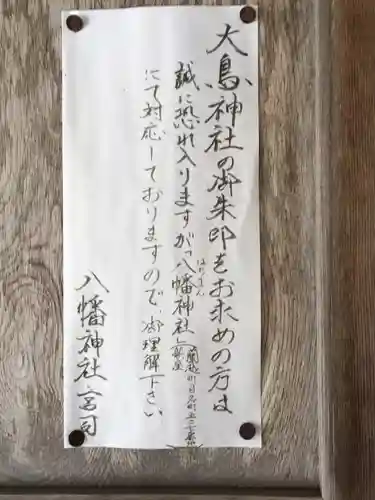 大鳥神社の御朱印をお求めの方は
誠に恐れ入りますが「八幡神社」
はちまん
にて対応しておりますので、御理解下さい
八幡神社宮司